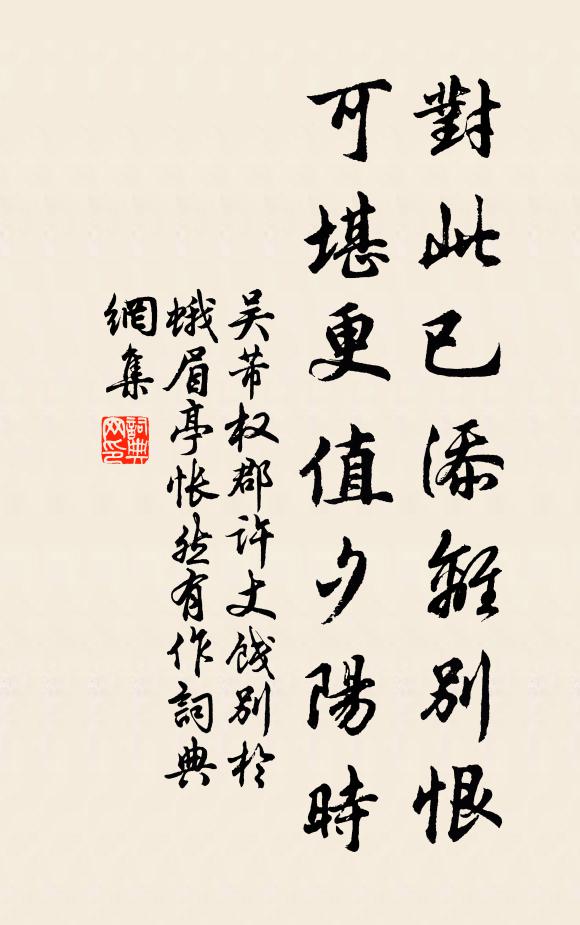 對此已添離別恨
可堪更值夕陽時
吴芾权郡许丈餞别於
蛾眉亭怅然有作詞典
網集
詞典
网印